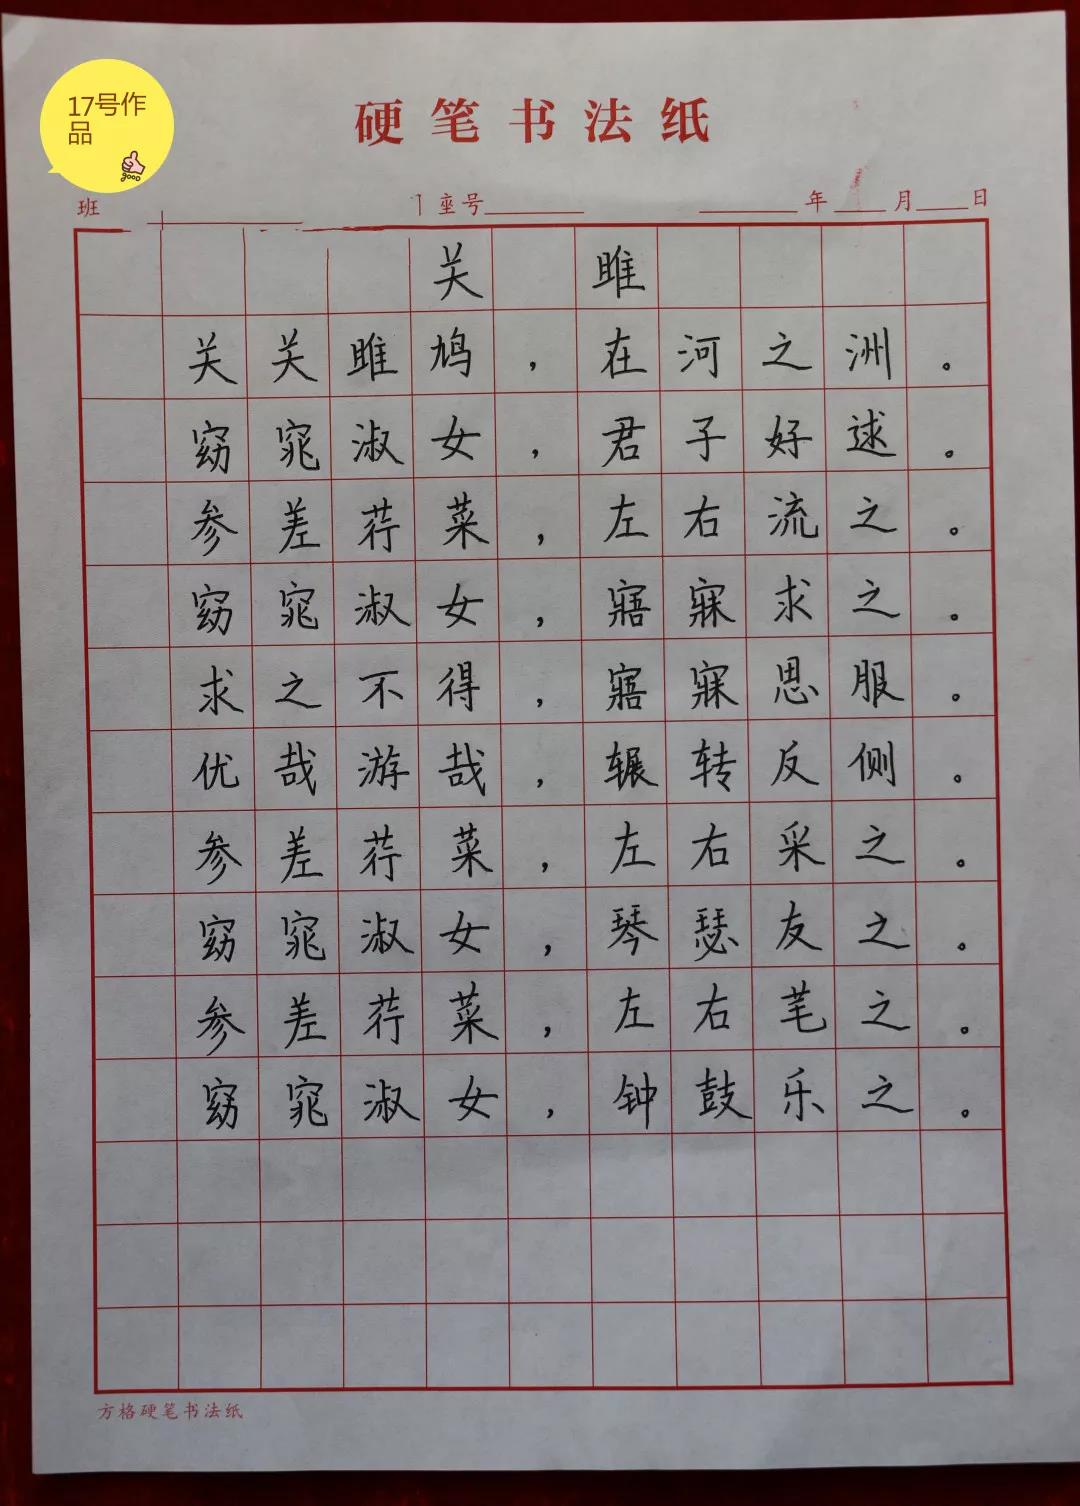 17号作
品
good
硬笔书法纸
班 座号 年 月 日
关 雎
关关雎鸠，在河之洲。
窈窕淑女，君子好逑。
参差荇菜，左右流之。
窈窕淑女，寤寐求之。
求之不得，寤寐思服。
优哉游哉，辗转反侧。
参差荇菜，左右采之。
窈窕淑女，琴瑟友之。
参差荇菜，左右芼之。
窈窕淑女，钟鼓乐之。
方格硬笔书法纸